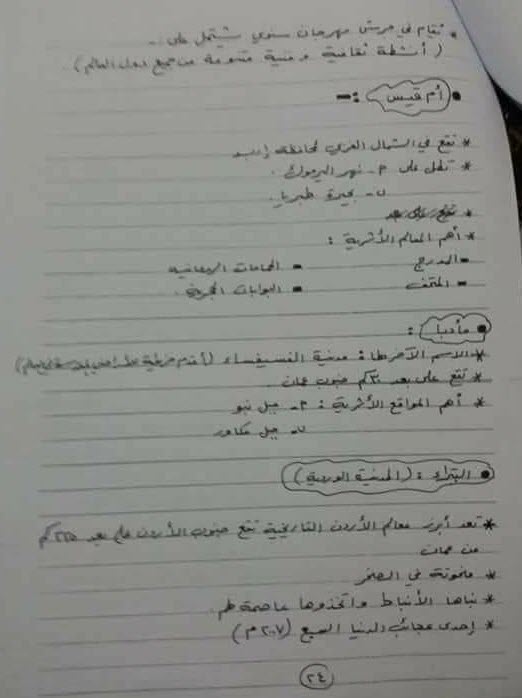 * تقام في جرش مهرجان سنوي يشتمل على..
(أنشطة ثقافية وفنية متنوعة من جميع دول العالم).
● أم قيس :-
* تقع في الشمال الغربي لمحافظة إربد
* تطل على ٢- نهر اليرموك.
ب- بحيرة طبريا.
* أهم المعالم الأثرية :
- المدرج - الحمامات الرومانية
- المتحف - البوابات الحجرية.
● مأدبا :
* الاسم الآخر لها : مدينة الفسيفساء (أقدم خريطة
* تقع على بعد ٣٠كم جنوب عمان.
* أهم المواقع الأثرية : ٢- جبل نبو
ب- جبل مكاور
● البتراء : (المدينة الوردية)
* تعد أبرز معالم الأردن التاريخية تقع جنوب الأردن على بعد ٢٢٥كم
من عمان
* منحوتة في الصخر
* بناها الأنباط واتخذوها عاصمة لهم.
* إحدى عجائب الدنيا السبع (٢٠٠٧م)
٢٤